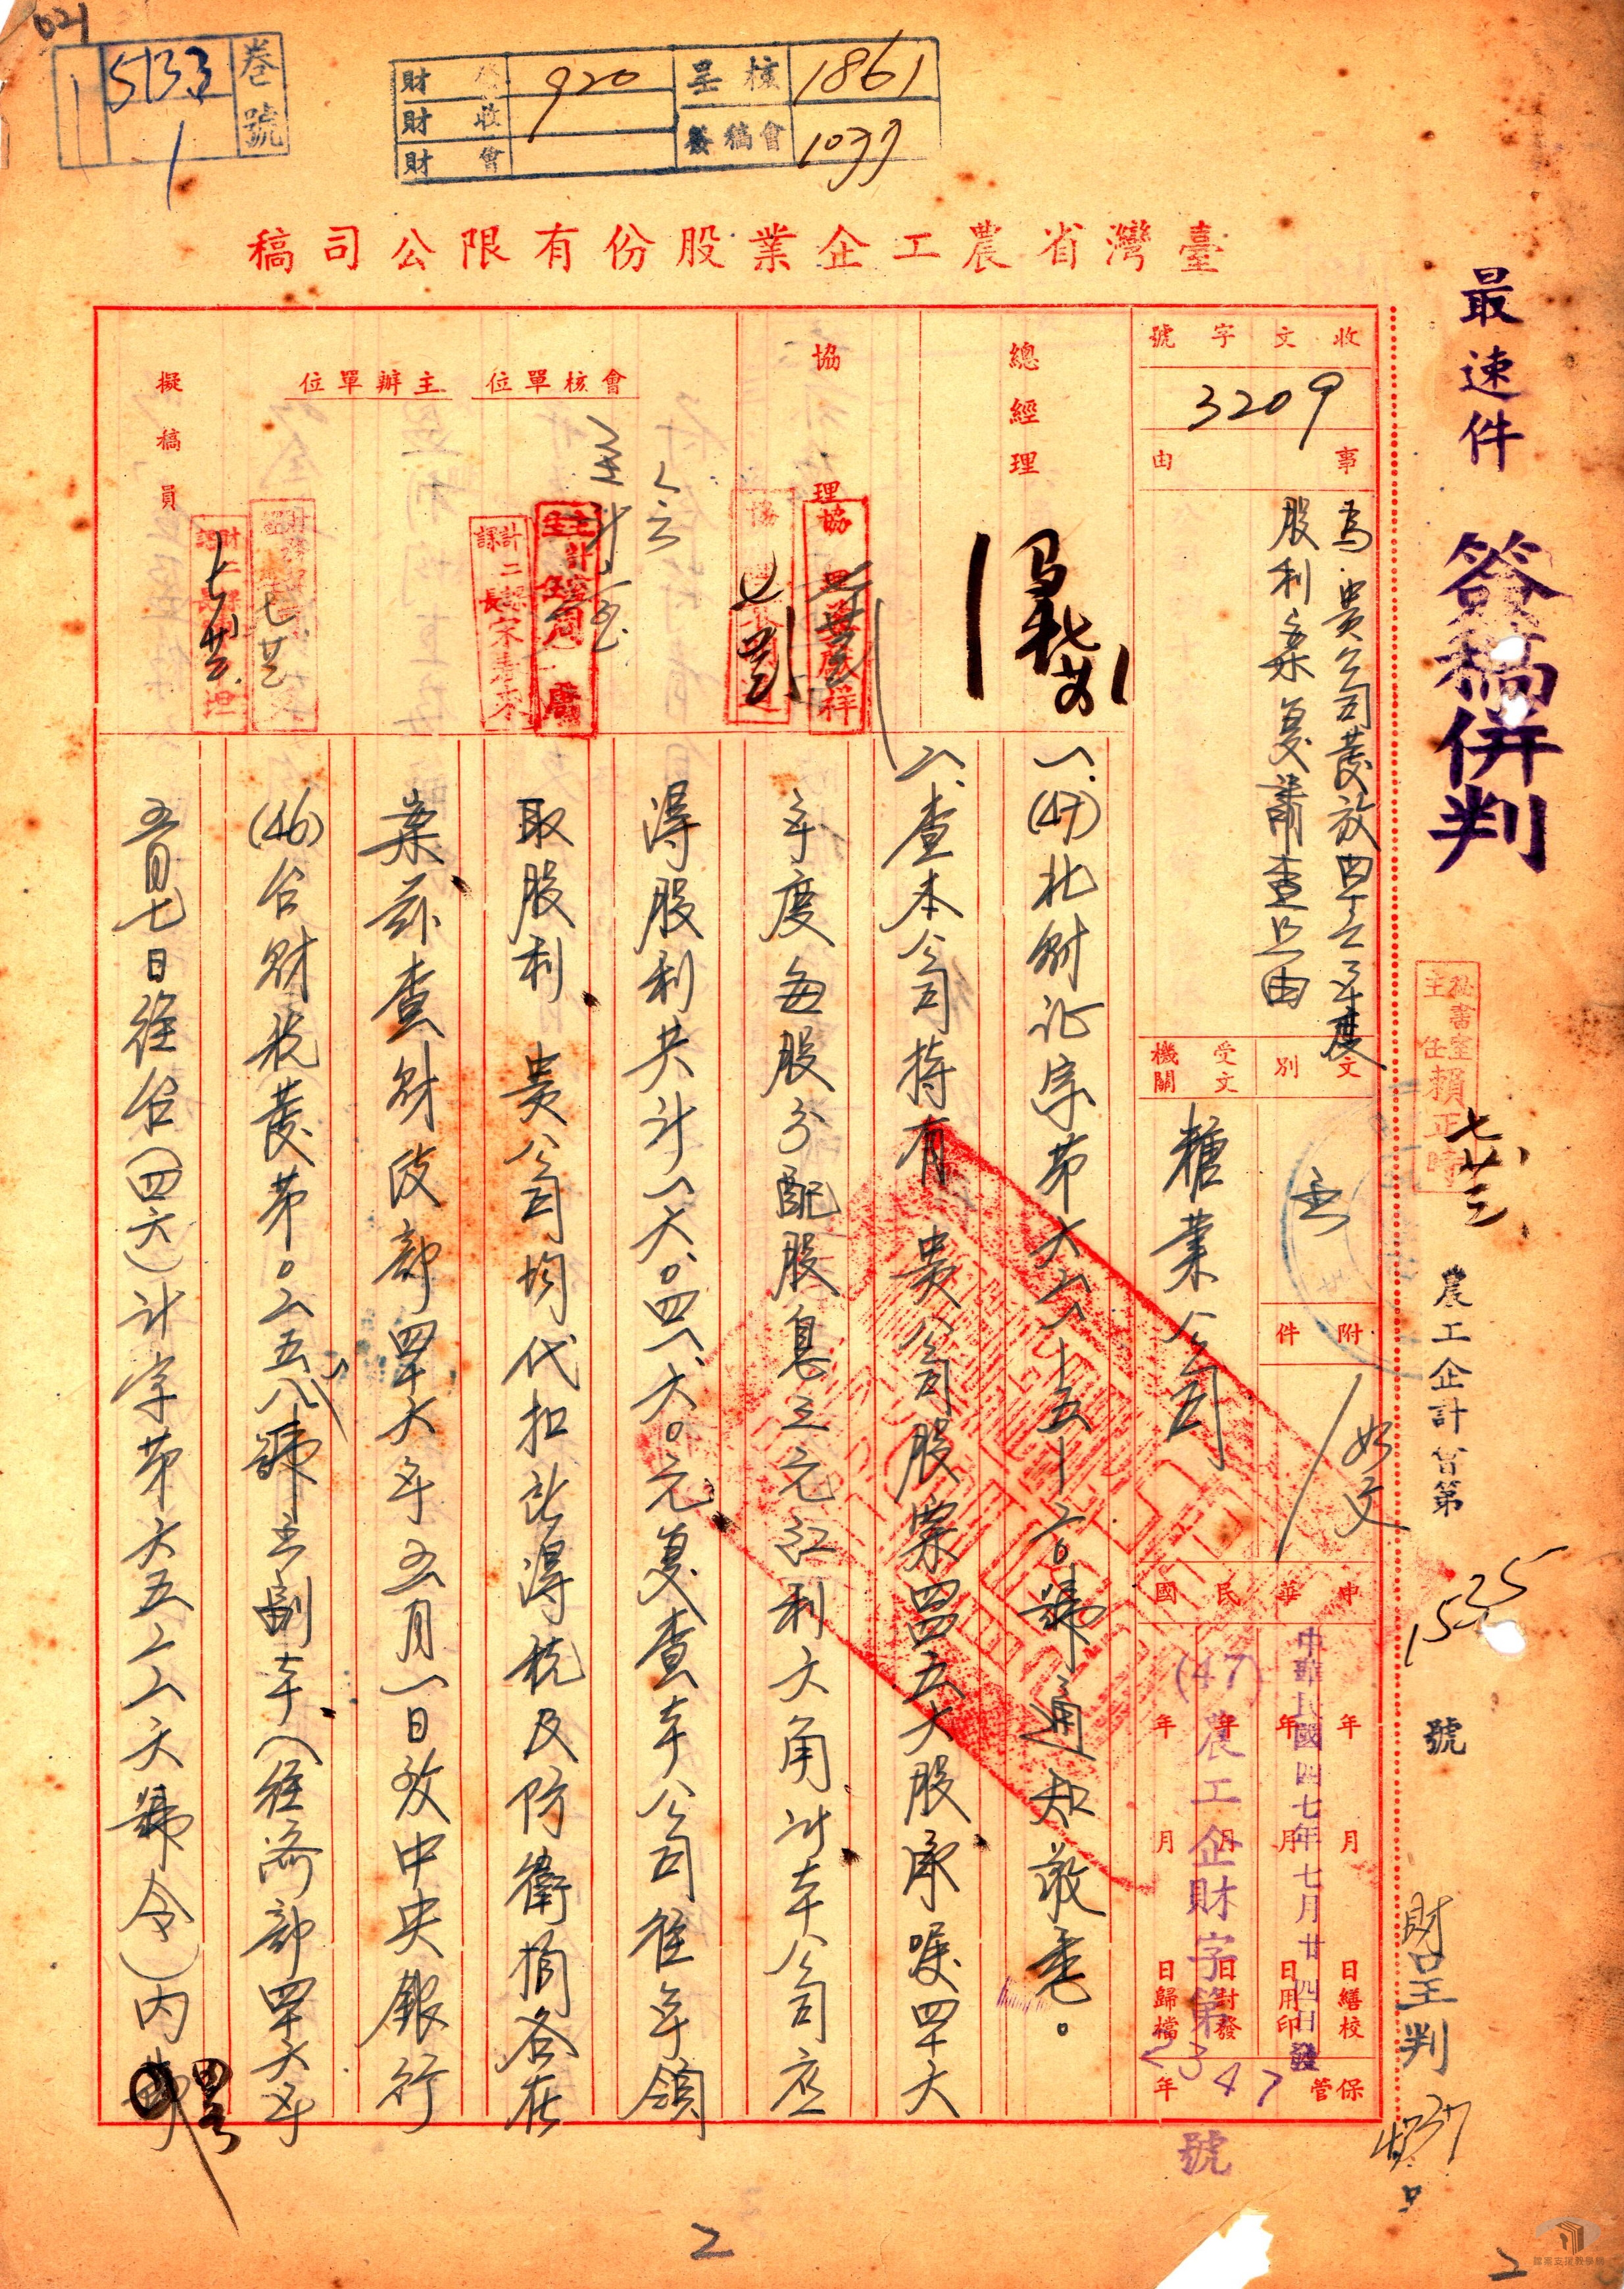 021
卷號
5133
1
財 發 920
財 收
財 會
呈核 1861
簽稿會 1037
臺灣省農工企業股份有限公司稿
最速件
簽稿併判
秘書室主任賴正時
七廿三
農工企計簽第1525號
財呈判
收文字號
3209
事由
為貴公司發放四十六年度
股利乙案復請查照由
文別
受文機關
糖業公司
附件
如文
中華民國
中華民國四七年七月廿四日發
(47)農工企財字第2347號
年 月 日繕校
年 月 日用印
年 月 日封發
年 月 日歸檔
保管 年
總經理
協理
會核單位
主辦單位
擬稿員
一、(47)北財証字第六六一五一二〇號通知敬悉。
二、查本公司持有 貴公司股票四四五六股承囑四十六
年度每股分配股息三元紅利六角計本公司應
得股利共計一六、〇四一、六〇元复查本公司往年領
取股利 貴公司均代扣所得稅及防衛捐各在
案茲查財政部四十六年五月一日致中央銀行
(46)台財稅發第〇二五八八號函副本入經濟部四十六年
五月七日經台(四六)計字第六五二二六號令)內
2